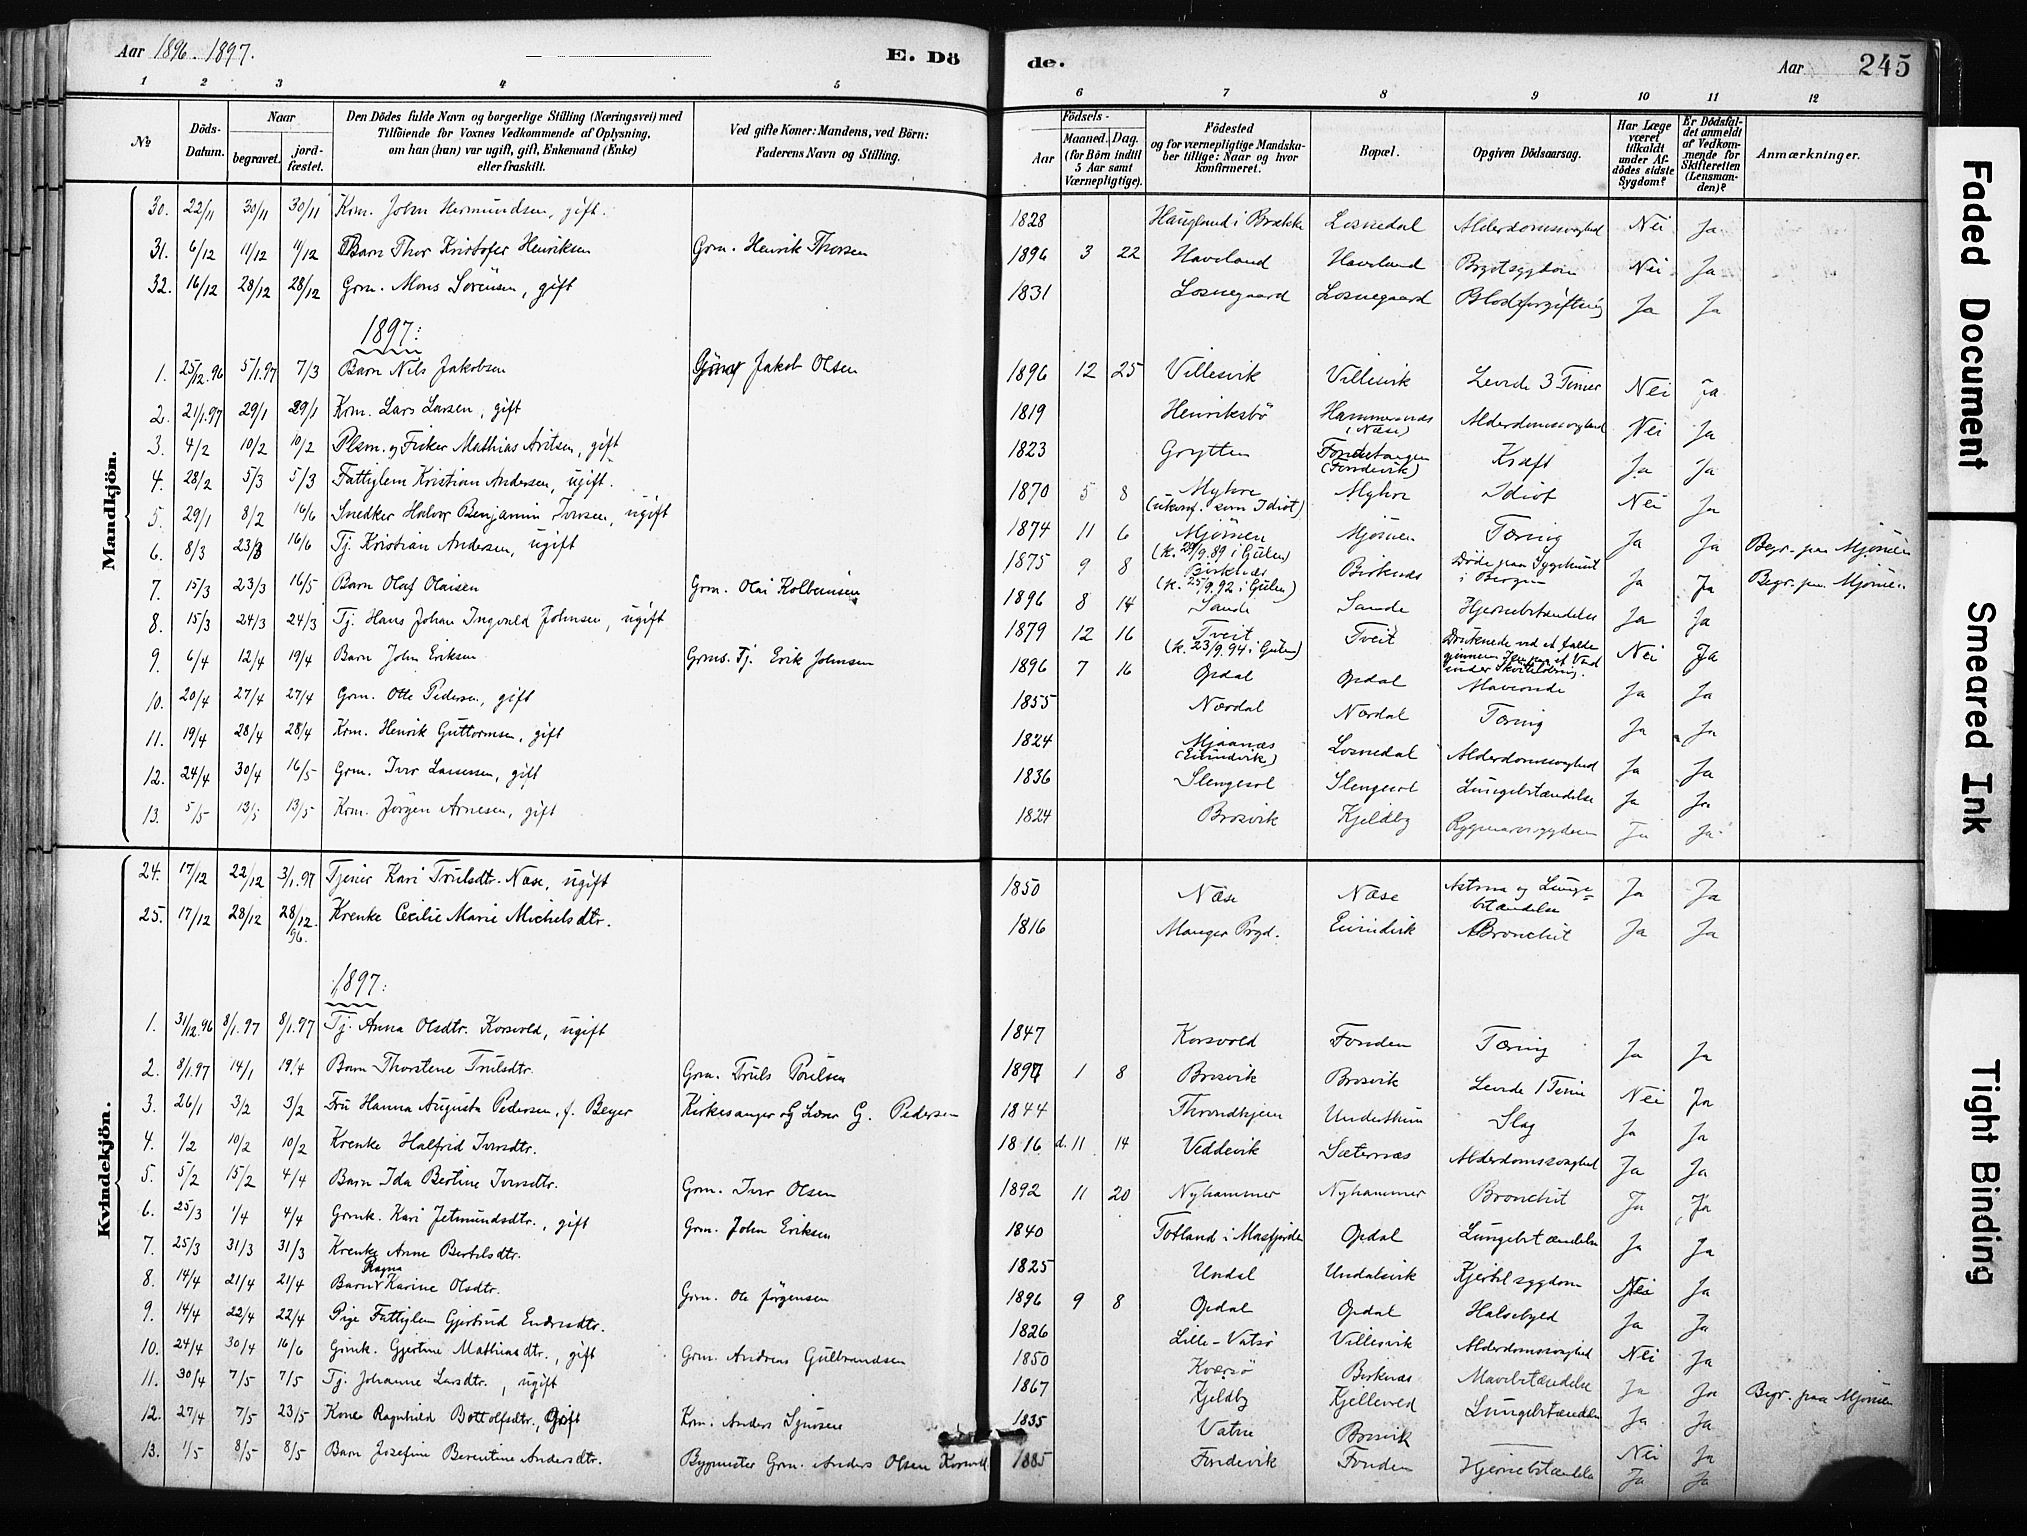 Aar 1896. 1897.
E. Dö
de.
Aar
245
1 2 3 4 5 6 7 8 9 10 11 12
No
Döds-Datum.
Naar
begravet.
jordfæstet.
Den Dödes fulde Navn og borgerlige Stilling (Næringsvei) med
Tilföiende for Voxnes Vedkommende af Oplysning,
om han (hun) var ugift, gift, Enkemand (Enke)
eller fraskilt.
Ved gifte Koner: Mandens, ved Börn:
Faderens Navn og Stilling.
Födsels-
Aar
Maaned. Dag.
(for Börn indtil
5 Aar samt
Værnepligtige).
Födested
og for værnepligtige Mandskaber tillige: Naar og hvor
konfirmeret.
Bopæl.
Opgiven Dödsaarsag.
Har Læge
været
tilkaldt
under Afdödes sidste
Sygdom?
Er Dödsfaldet anmeldt
af Vedkommende for
Skifteretten
(Lensmanden)?
Anmærkninger.
Mandkjön.
30. 22/11 30/11 30/11 Krm. John Hermundsen, gift. 1828 Haugland i Brække Losnedal Alderdomssvaghed Nei Ja
31. 6/12 11/12 11/12 Barn Thor Kristofer Henriksen Grm. Henrik Thorsen 1896 3 22 Haveland Haveland Brystsygdom Nei Ja
32. 16/12 28/12 28/12 Grm. Mons Sörensen, gift 1831 Losnegaard Losnegaard Blodforgiftning Ja Ja
1897:
1. 25/12.96 5/1.97 7/3 Barn Nils Jakobsen Jakob Olsen 1896 12 25 Villesvik Villesvik Levede 3 Timer Nei Ja
2. 21/1.97 29/1 29/1 Krm. Lars Larsen, gift 1819 Henriksbö Hammersnæs (Næse) Alderdomssvaghed Nei Ja
3. 4/2 10/2 10/2 Plsm. og Fisker Mathias Avitsen, gift 1823 Grytten Fondetangen (Fondevik) Kræft Ja Ja
4. 28/2 5/3 5/3 Fattiglem Kristian Andersen, ugift. 1870 5 8 Myhre (ukonf. som Idiot) Myhre Idiot Nei Ja
5. 29/1 8/2 16/6 Snedker Halvor Benjamin Iversen, ugift 1874 11 6 Mjömen (k. 29/9.89 i Gulen) Mjömen Tæring Ja Ja Begr. paa Mjömen
6. 8/3 23/3 16/6 Tj. Kristian Andersen, ugift 1875 9 8 Birknæs (k. 25/9.92 i Gulen) Birknæs Döde paa Sygehuset i Bergen Ja Ja Begr. paa Mjömen
7. 15/3 23/3 16/5 Barn Olaf Olaisen Grm. Olai Kolbeinsen 1896 8 14 Sande Sande Hjernebetændelse Ja Ja
8. 15/3 24/3 24/3 Tj. Hans Johan Ingvald Johnsen, ugift 1879 12 16 Tveit (k. 23/9.94 i Gulen) Tveit Druknede ved at falde gjennem Isen paa et Vand under Nei Ja
9. 6/4 12/4 19/4 Barn John Eriksen Grms. Tj. Erik Johnsen 1896 7 16 Opdal Opdal Maveonde Ja Ja
10. 20/4 27/4 27/4 Grm. Otte Pedersen, gift 1855 Nordal Nordal Tæring Ja Ja
11. 19/4 28/4 28/4 Krm. Henrik Guttormsen, gift 1824 Mjaanæs (Eivindvik) Losnedal Alderdomssvaghed Ja Ja
12. 24/4 30/4 16/5 Grm. Iver Lassesen, gift 1836 Slengesol Slengesol Lungebetændelse Ja Ja
13. 5/5 13/5 13/5 Krm. Jörgen Arnesen, gift 1824 Brosvik Kjeldby Rygmarvsygdom Ja Ja
Kvindekjön.
24. 17/12 22/12 3/1.97 Tjener Kari Trulsdtr. Næse, ugift 1850 Næse Næse Astma og Lungebetændelse Ja Ja
25. 17/12 28/12 28/12.96. Krenke Cecilie Marie Michelsdtr. 1816 Manger Prgd. Eivindvik Bronchit Ja Ja
1897:
1. 31/12.96 8/1.97 8/1.97 Tj. Anna Olsdtr. Korsvold, ugift 1847 Korsvold Fonden Tæring Ja Ja
2. 8/1.97 14/1 19/4 Barn Thorstene Trulsdtr. Grm. Truls Poulsen 1897 1 8 Brosvik Brosvik Levede 1 Time Nei Ja
3. 26/1 3/2 3/2 Fru Hanna Augusta Pedersen, f. Beyer Kirkesanger og Lærer G. Pedersen 1844 Throndhjem Underthun Slag Ja Ja
4. 1/2 10/2 10/2 Krenke Halfrid Iversdtr. 1816 d. 11 14 Veddevik Sæternæs Alderdomssvaghed Ja Ja
5. 5/2 15/2 4/4 Barn Ida Bertine Iversdtr. Grm. Iver Olsen 1892 11 20 Nyhammer Nyhammer Bronchit Ja Ja
6. 25/3 1/4 4/4 Grmk. Kari Jetmundsdtr., gift Grm. John Eriksen 1840 Totland i Masfjorden Opdal Lungebetændelse Ja Ja
7. 25/3 31/3 31/3 Krenke Anne Bertelsdtr. 1825 Undal Undalsvik Kjertelsygdom Nei Ja
8. 14/4 21/4 21/4 Barn Ragna Karine Olsdtr. Grm. Ole Jörgensen 1896 9 8 Opdal Opdal Halsebyld Ja Ja
9. 14/4 22/4 22/4 Pige Fattiglem Gjertrud Endresdtr. 1826 Lille-Vatsö Villesvik Alderdomssvaghed Nei Ja
10. 24/4 30/4 16/6 Grmk. Gjertine Mathiasdtr., gift Grm. Andreas Gulbrandsen 1850 Kversö Birknæs Mavebetændelse Ja Ja Begr. paa Mjömen
11. 30/4 7/5 7/5 Tj. Johanne Larsdtr., ugift 1867 Kjeldby Kjellevold Lungebetændelse Ja Ja
12. 27/4 7/5 23/5 Kone Ragnhild Bottolfsdtr., Gift Krm. Anders Synsene 1835 Vatne Brosvik Nei Ja
13. 1/5 8/5 8/5 Barn Josefine Berentine Andersdtr. Bygmester Grm. Anders Olsen Korsvold 1885 Fondevik Fonden Hjernebetændelse Ja Ja
Faded Document
Smeared Ink
Tight Binding